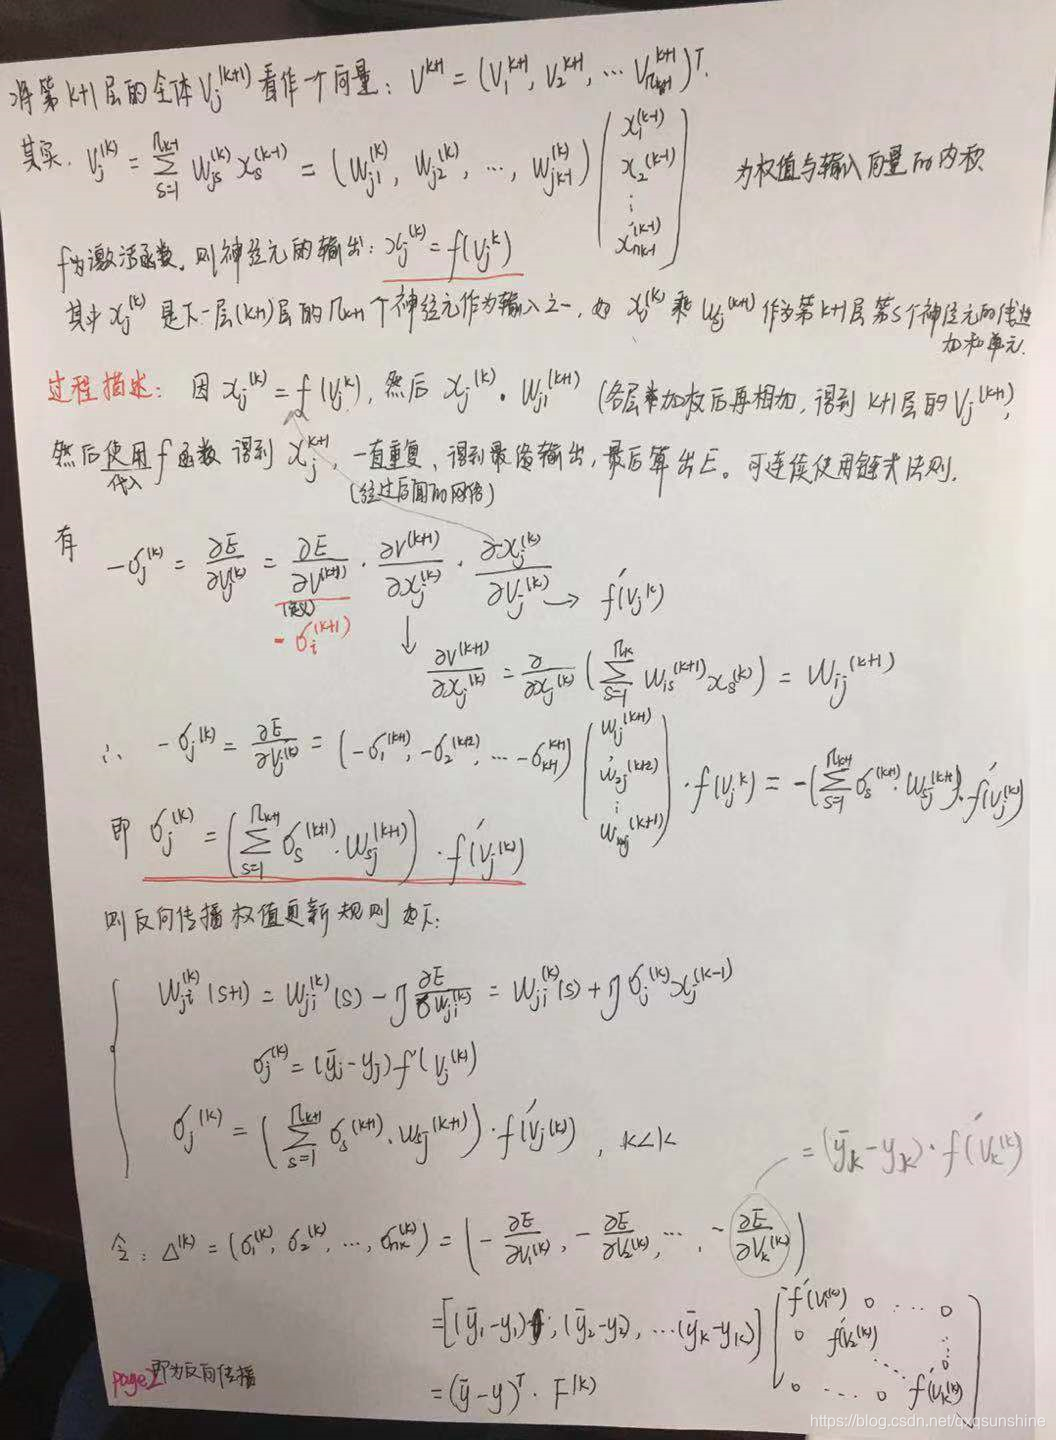 将第k+1层的全体 V_j^(k+1) 看作一个向量: V^k+1 = (V_1^k+1, V_2^k+1, … V_n_k+1^k+1)^T.
其实. V_j^(k) = Σ_{s=1}^{n_k-1} W_js^(k) x_s^(k-1) = (W_j1^(k), W_j2^(k), …, W_jk-1^(k)) (x_1^(k-1) x_2^(k-1) ⋮ x_nk-1^(k-1)) 为权值与输入向量的内积
f为激活函数. 则神经元的输出: x_j^(k) = f(V_j^k)
其中 x_j^(k) 是下一层(k+1)层的 n_k+1 个神经元作为输入之一, 如 x_j^(k) 乘 W_sj^(k+1) 作为第k+1层第s个神经元的线性
加和单元.
过程描述: 因 x_j^(k) = f(V_j^k), 然后 x_j^(k) · W_j1^(k+1) (各层乘加权后再相加, 得到 k+1层的 V_j^(k+1),
然后使用 f 函数 得到 x_j^k+1, 一直重复, 得到最终输出, 最后算出E. 可连续使用链式法则.
代入 (经过后面的网络)
有 -σ_j^(k) = ∂E/∂V_j^(k) = ∂E/∂V^(k+1) · ∂V^(k+1)/∂x_j^(k) · ∂x_j^(k)/∂V_j^(k) → f'(V_j^k)
(定义)
-σ_i^(k+1) ↓
∂V^(k+1)/∂x_j^(k) = ∂/∂x_j^(k) (Σ_{s=1}^{n_k} W_is^(k+1) x_s^(k)) = W_ij^(k+1)
∴ -σ_j^(k) = ∂E/∂V_j^(k) = (-σ_1^(k+1), -σ_2^(k+2), … -σ_k+1^k+1) (W_j^(k+1) W_2j^(k+2) ⋮ W_nj^(k+1)) · f(V_j^k) = -(Σ_{s=1}^{n_k+1} σ_s^(k+1) · W_sj^(k+1)) · f'(V_j^(k))
即 σ_j^(k) = (Σ_{s=1}^{n_k+1} σ_s^(k+1) · W_sj^(k+1)) · f'(V_j^(k))
则反向传播权值更新规则如下:
W_ji^(k)(s+1) = W_ji^(k)(s) - η ∂E/∂W_ji^(k) = W_ji^(k)(s) + η σ_j^(k) x_j^(k-1)
σ_j^(k) = (ȳ_j - y_j) f'(V_j^(k))
σ_j^(k) = (Σ_{s=1}^{n_k+1} σ_s^(k+1) · W_sj^(k+1)) · f'(V_j^(k)) , k<k
= (ȳ_k - y_k) · f'(V_k^(k))
令: Δ^(k) = (σ_1^(k), σ_2^(k), …, σ_nk^(k)) = (-∂E/∂V_1^(k), -∂E/∂V_2^(k), …, -∂E/∂V_k^(k))
= [(ȳ_1 - y_1), (ȳ_2 - y_2), … (ȳ_k - y_k)] [f'(V_1^(k)) 0 … 0 0 f'(V_2^(k)) ⋮ 0 0 … 0 f'(V_k^(k))]
= (ȳ - y)^T · F^(k)
page2 即为反向传播
https://blog.csdn.net/qxqsunshine